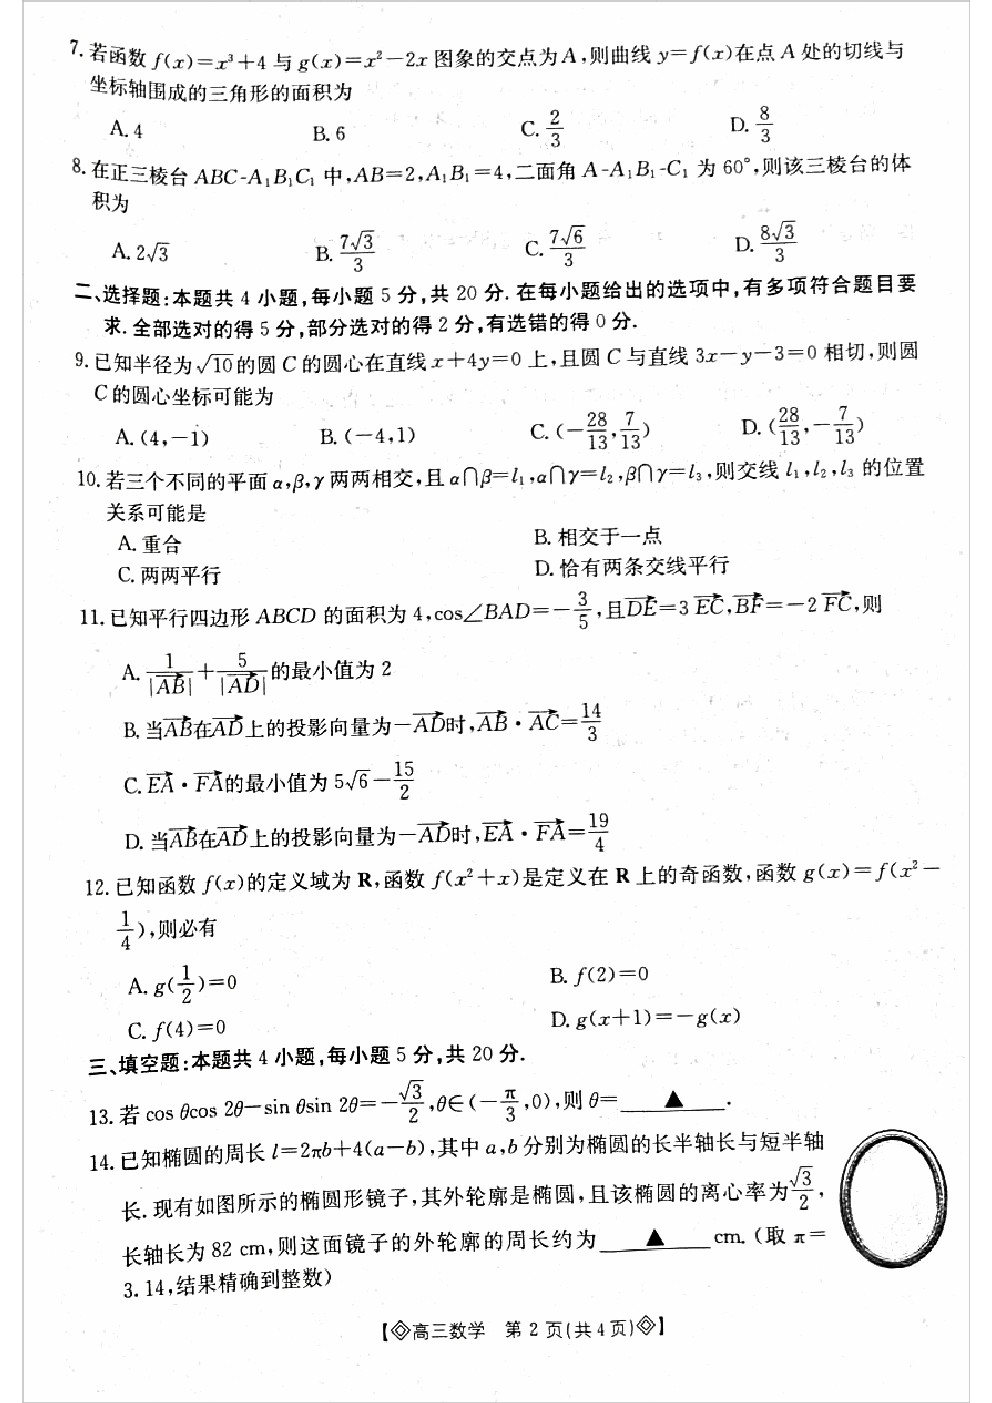 7. 若函数 f(x)=x³+4 与 g(x)=x²-2x 图象的交点为 A,则曲线 y=f(x)在点 A 处的切线与
坐标轴围成的三角形的面积为
A. 4 B. 6 C. 2/3 D. 8/3
8. 在正三棱台 ABC-A₁B₁C₁ 中,AB=2,A₁B₁=4,二面角 A-A₁B₁-C₁ 为 60°,则该三棱台的体
积为
A. 2√3 B. 7√3/3 C. 7√6/3 D. 8√3/3
二、选择题:本题共 4 小题,每小题 5 分,共 20 分. 在每小题给出的选项中,有多项符合题目要
求. 全部选对的得 5 分,部分选对的得 2 分,有选错的得 0 分.
9. 已知半径为√10的圆 C 的圆心在直线 x+4y=0 上,且圆 C 与直线 3x-y-3=0 相切,则圆
C 的圆心坐标可能为
A. (4,-1) B. (-4,1) C. (-28/13,7/13) D. (28/13,-7/13)
10. 若三个不同的平面 α,β,γ 两两相交,且 α∩β=l₁,α∩γ=l₂,β∩γ=l₃,则交线 l₁,l₂,l₃ 的位置
关系可能是
A. 重合 B. 相交于一点
C. 两两平行 D. 恰有两条交线平行
11. 已知平行四边形 ABCD 的面积为 4,cos∠BAD=-3/5,且DE→=3 EC→,BF→=-2 FC→,则
A. 1/|AB→|+5/|AD→|的最小值为 2
B. 当AB→在AD→上的投影向量为-AD→时,AB→·AC→=14/3
C. EA→·FA→的最小值为 5√6-15/2
D. 当AB→在AD→上的投影向量为-AD→时,EA→·FA→=19/4
12. 已知函数 f(x)的定义域为 R,函数 f(x²+x)是定义在 R 上的奇函数,函数 g(x)=f(x²-
1/4),则必有
A. g(1/2)=0 B. f(2)=0
C. f(4)=0 D. g(x+1)=-g(x)
三、填空题:本题共 4 小题,每小题 5 分,共 20 分.
13. 若 cos θcos 2θ-sin θsin 2θ=-√3/2,θ∈(-π/3,0),则 θ=____▲____.
14. 已知椭圆的周长 l=2πb+4(a-b),其中 a,b 分别为椭圆的长半轴长与短半轴
长. 现有如图所示的椭圆形镜子,其外轮廓是椭圆,且该椭圆的离心率为√3/2,
长轴长为 82 cm,则这面镜子的外轮廓的周长约为____▲____cm. (取 π=
3.14,结果精确到整数)
【◇高三数学 第 2 页(共 4 页)◇】